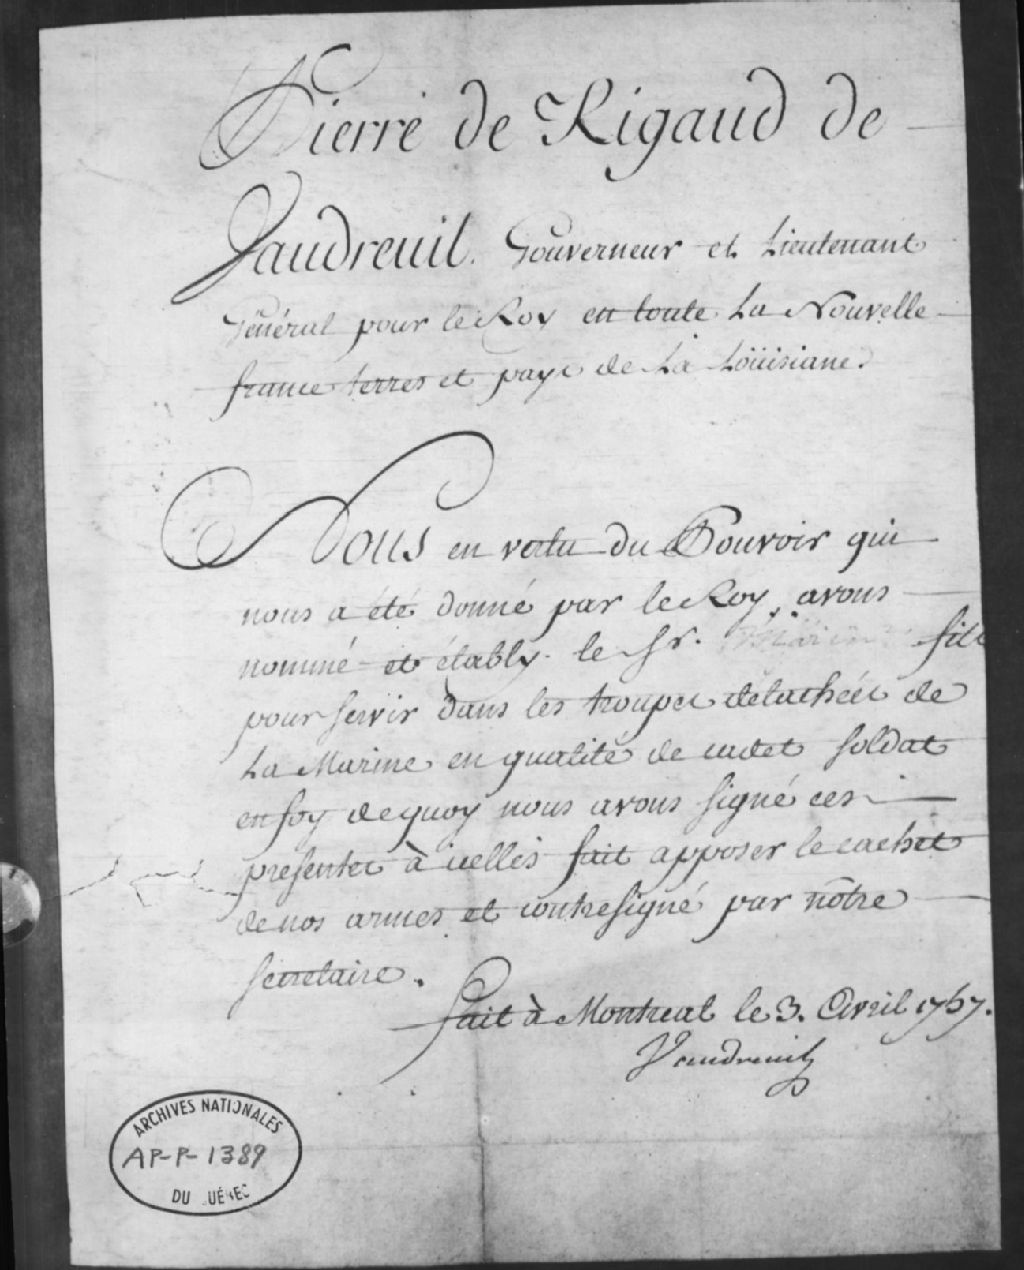 Pierre de Rigaud de
Vaudreuil. Gouverneur et Lieutenant
Général pour le Roy en toute La Nouvelle
france terres et pays de La Loüisiane.
Nous en vertu du Pouvoir qui
nous a été donné par le Roy, avons
nommé et étably le Sr. fils
pour servir dans les troupes détachées de
La Marine en qualité de cadet soldat
en foy de quoy nous avons signé ces
presentes à icelles fait apposer le cachet
de nos armes et contresigné par nôtre
secretaire.
fait à Montreal le 3. Avril 1757.
Vaudreuil
ARCHIVES NATIONALES
AP-P-1389
DU QUÉBEC